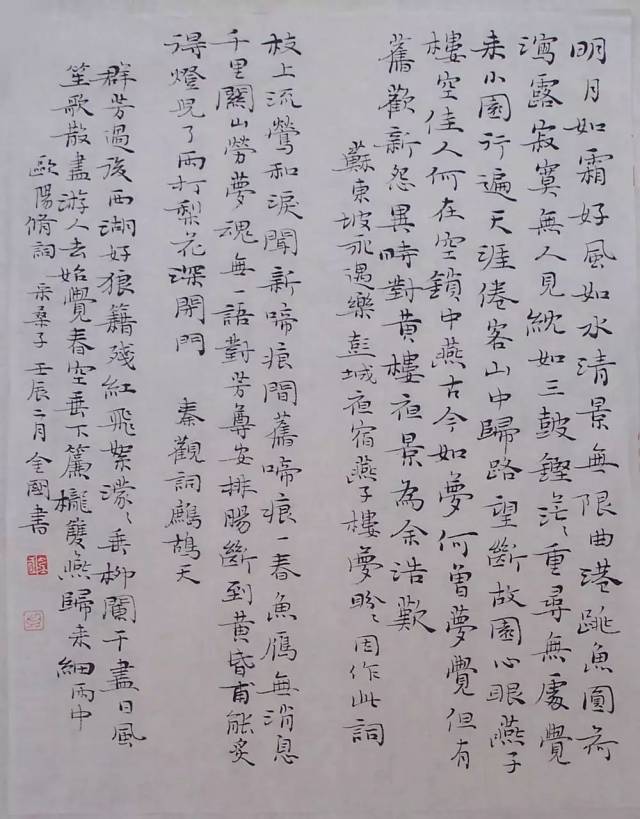 明月如霜好風如水清景無限曲港跳魚圓荷
瀉露寂寞無人見紞如三鼓鏗茫〻重尋無處覺
来小園行遍天涯倦客山中歸路望斷故園心眼燕子
樓空佳人何在空鎖中燕古今如夢何曾夢覺但有
舊歡新怨異時對黄樓夜景為余浩歎
蘇東坡永遇樂彭城夜宿燕子樓夢盼〻因作此詞
枝上流鶯和淚聞新啼痕間舊啼痕一春魚鴈無消息
千里關山勞夢魂無一語對芳尊安排腸斷到黄昏甫能炙
得燈兒了雨打梨花深閉門 秦觀詞鷓鴣天
群芳過後西湖好狼籍殘紅飛絮濛〻垂柳闌干盡日風
笙歌散盡游人去始覺春空垂下簾櫳雙燕歸来細雨中
歐陽脩詞 采桑子 壬辰二月 全國書